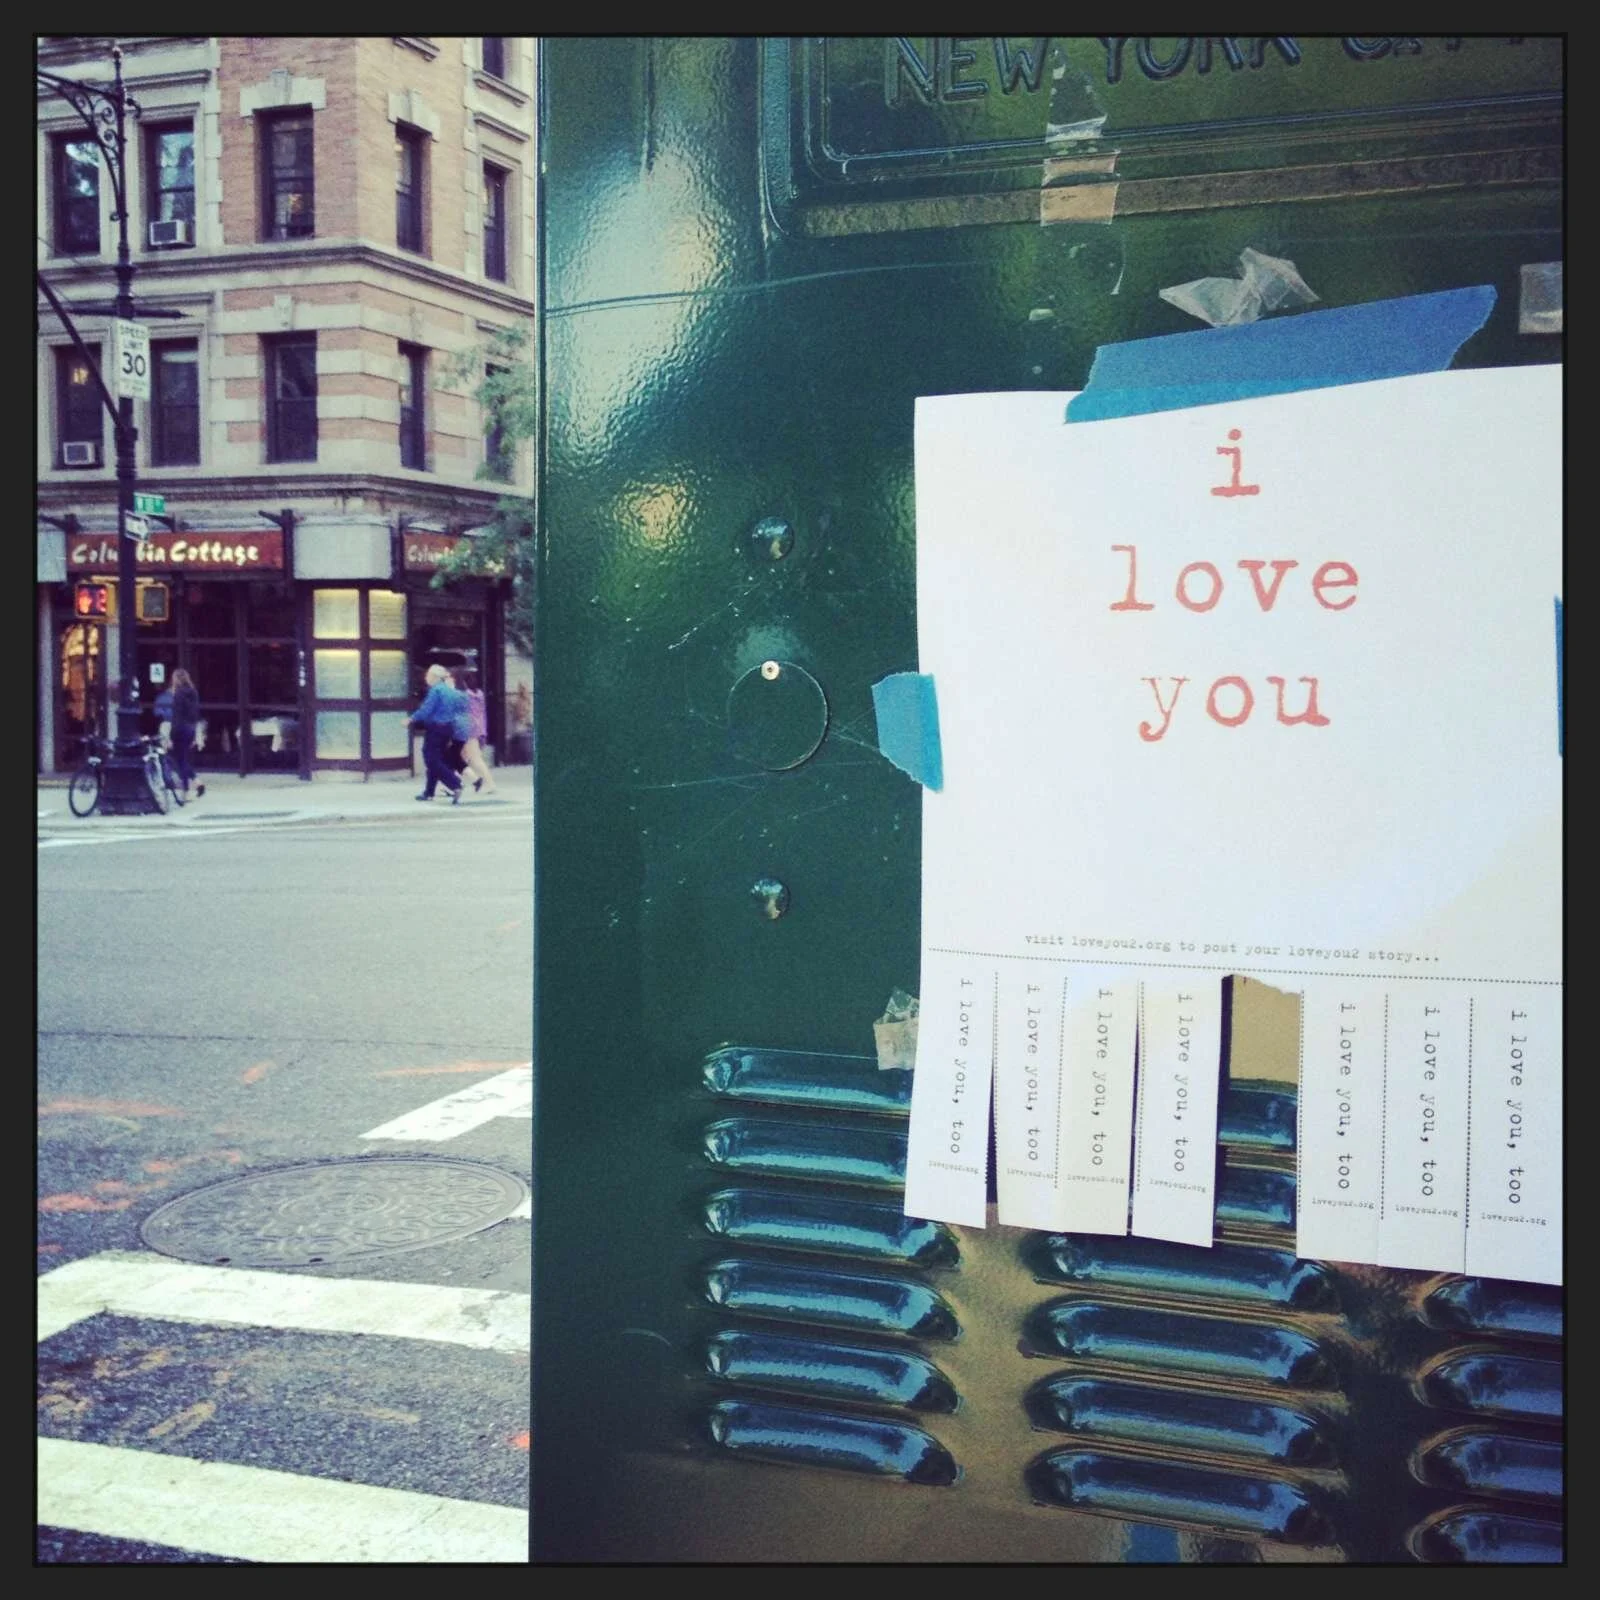 NEW YORK CITY
SPEED
LIMIT
30
Columbia Cottage
A
i
love
you
visit loveyou2.org to post your loveyou2 story...
i love you, too
loveyou2.org
i love you, too
loveyou2.or
i love you, too
loveyou2.org
i love you, too
loveyou2.org
i love you, too
loveyou2.org
i love you, too
loveyou2.org
i love you, too
loveyou2.org